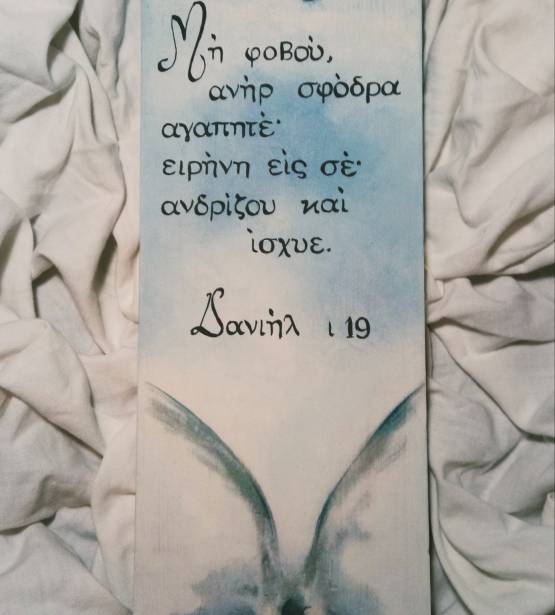 Μὴ φοβοὺ,
ανὴρ σφὸδρα
αγαπητὲ·
ειρὴνη εὶς σὲ·
ανδρὶζου καὶ
ὶσχυε.
Δανιὴλ ι 19